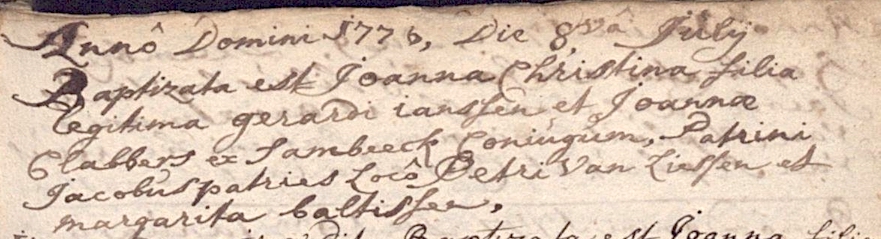 Annô Domini 1776, Die 8.vâ Julij
Baptizata est Joanna Christina filia
legitima gerardi ianssen et Joannæ
Clabbers ex Sambeeck Coniugum, Patrini
Jacobus patries Locô Petri Van Liessen et
margarita baltissee,
Baptizata est Joanna filia